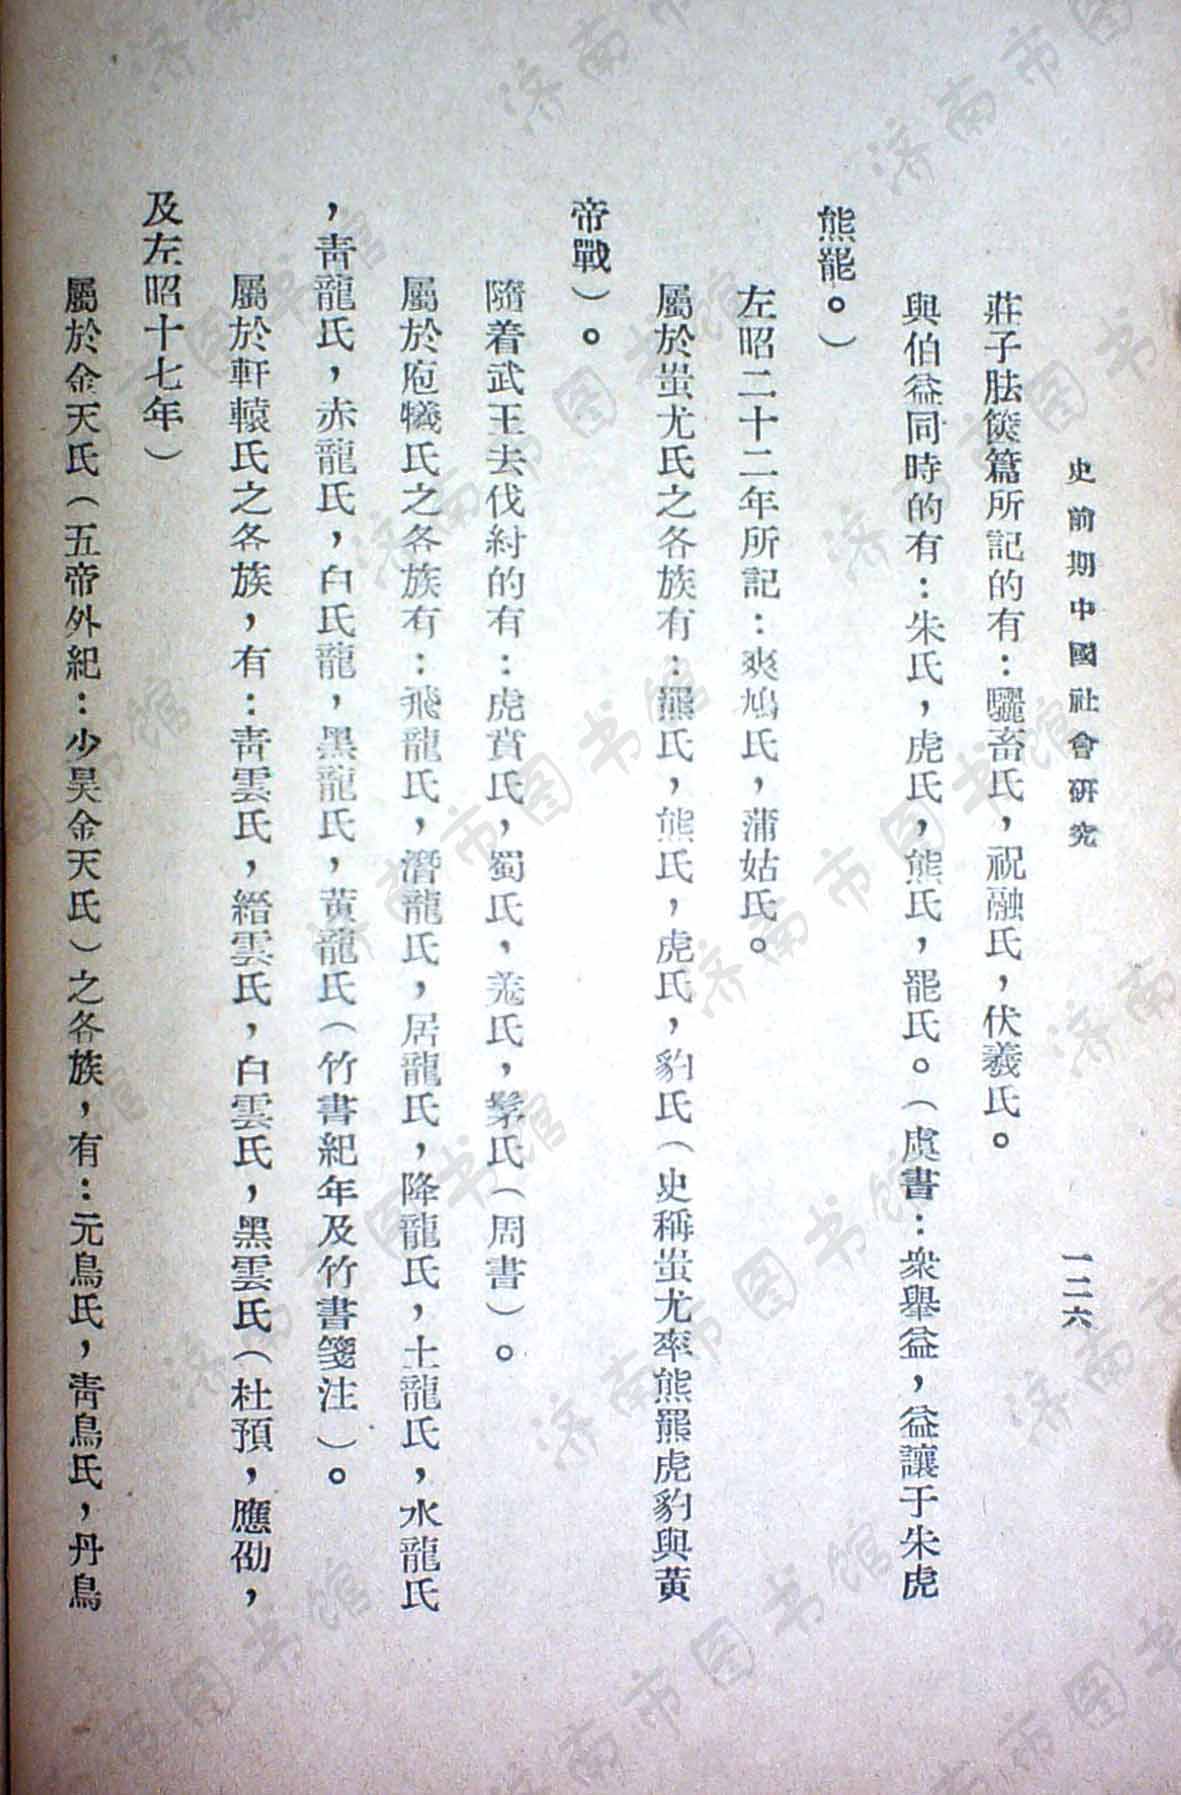 史前期中國社會研究
一二六
莊子胠篋篇所記的有：驪畜氏，祝融氏，伏羲氏。
與伯益同時的有：朱氏，虎氏，熊氏，羆氏。（虞書：衆舉益，益讓于朱虎
熊羆。）
左昭二十二年所記：爽鳩氏，蒲姑氏。
屬於蚩尤氏之各族有：羆氏，熊氏，虎氏，豹氏（史稱蚩尤率熊羆虎豹與黃
帝戰）。
隨着武王去伐紂的有：虎賁氏，蜀氏，羗氏，髳氏（周書）。
屬於庖犧氏之各族有：飛龍氏，潛龍氏，居龍氏，降龍氏，土龍氏，水龍氏
，靑龍氏，赤龍氏，白氏龍，黑龍氏，黃龍氏（竹書紀年及竹書箋注）。
屬於軒轅氏之各族，有：靑雲氏，縉雲氏，白雲氏，黑雲氏（杜預，應劭，
及左昭十七年）
屬於金天氏（五帝外紀：少昊金天氏）之各族，有：元鳥氏，靑鳥氏，丹鳥
济南市图书馆